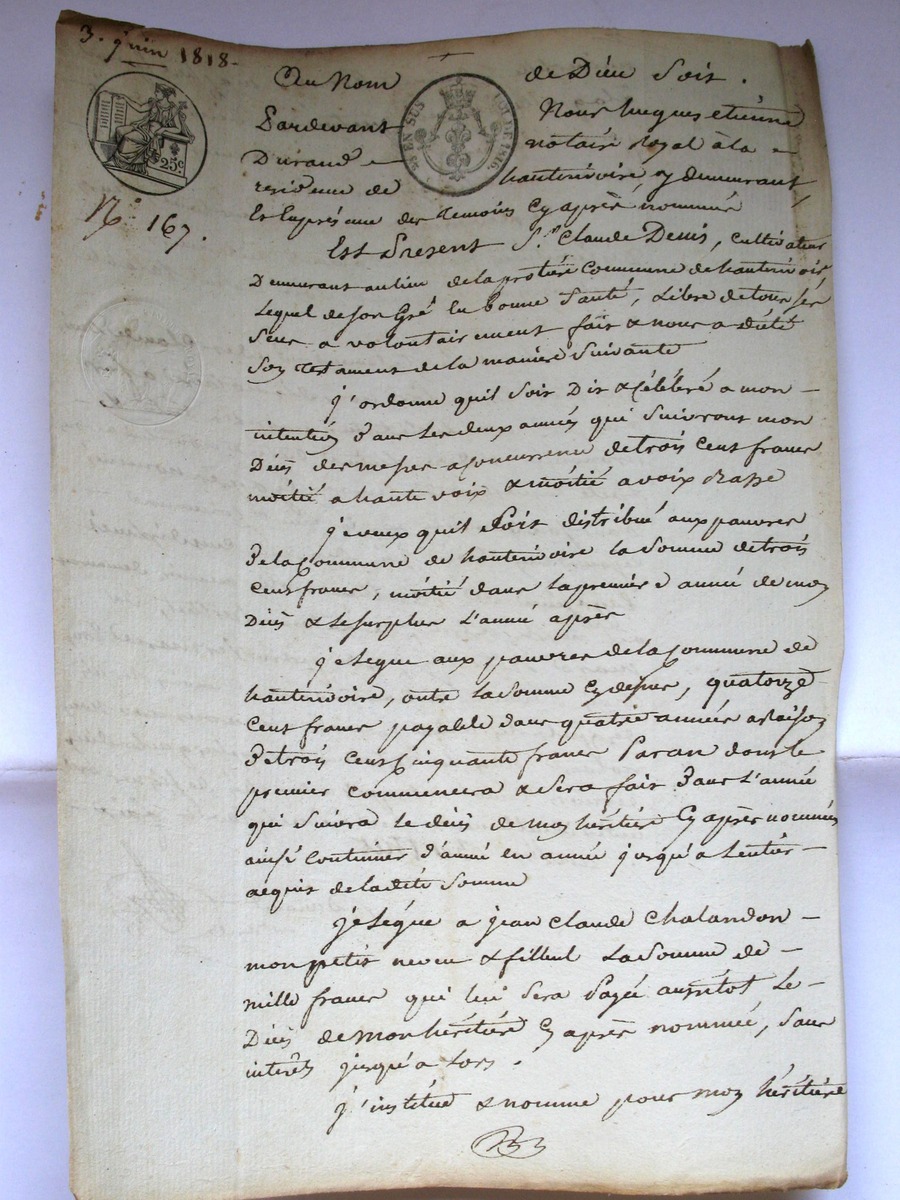 3. juin 1818.
Au Nom de Dieu Soit.
Pardevant Nous hugues etiénne
Durand notaire Royal à la
residence de hauterivoire y demeurant,
Et En présence des temoins Cy après nommés
Est Présent Sr. Claude Denis, cultivateur
Demeurant au lieu de la protière Commune de hauterivoire
Lequel de son Gré En bonne Santé, Libre de tous ses
Sens a volontairement fait & nous a dicté
Son testament de la manière Suivante
j'ordonne quil soit Dit & Célébré a mon
intention Dans les deux années qui Suivront mon
Décés des messes a concurrence de trois cent francs
moitié a haute voix & moitié a voix Basse
je veux quil soit distribué aux pauvres
De la Commune de hauterivoire la Somme de trois
Cent francs, moitié dans la premiere année de mon
Décés & le surplus L'année après
je Legue aux pauvres de la Commune de
hauterivoire, outre la Somme Cy dessus, quatorze
Cent francs payable dans quatre années a raison
De trois Cent Cinquante francs Par an dont le
premier commencera & Sera fait Dans L'année
qui Suivra le décés de mon héritière Cy après nommée
ainsi Continuer d'année en année jusqu'a L'entier
acquit de la dite Somme
je Légue a jean Claude Chalandon
mon petit neveu & filleul La Somme de
mille francs qui lui Sera Payée aussitot Le
Décés de mon héritière Cy après nommée, Sans
interêts jusqu'a Lors.
j'institue & nomme pour mon héritière
25c.
EN SUS
LOI DE 1816.
No. 167.